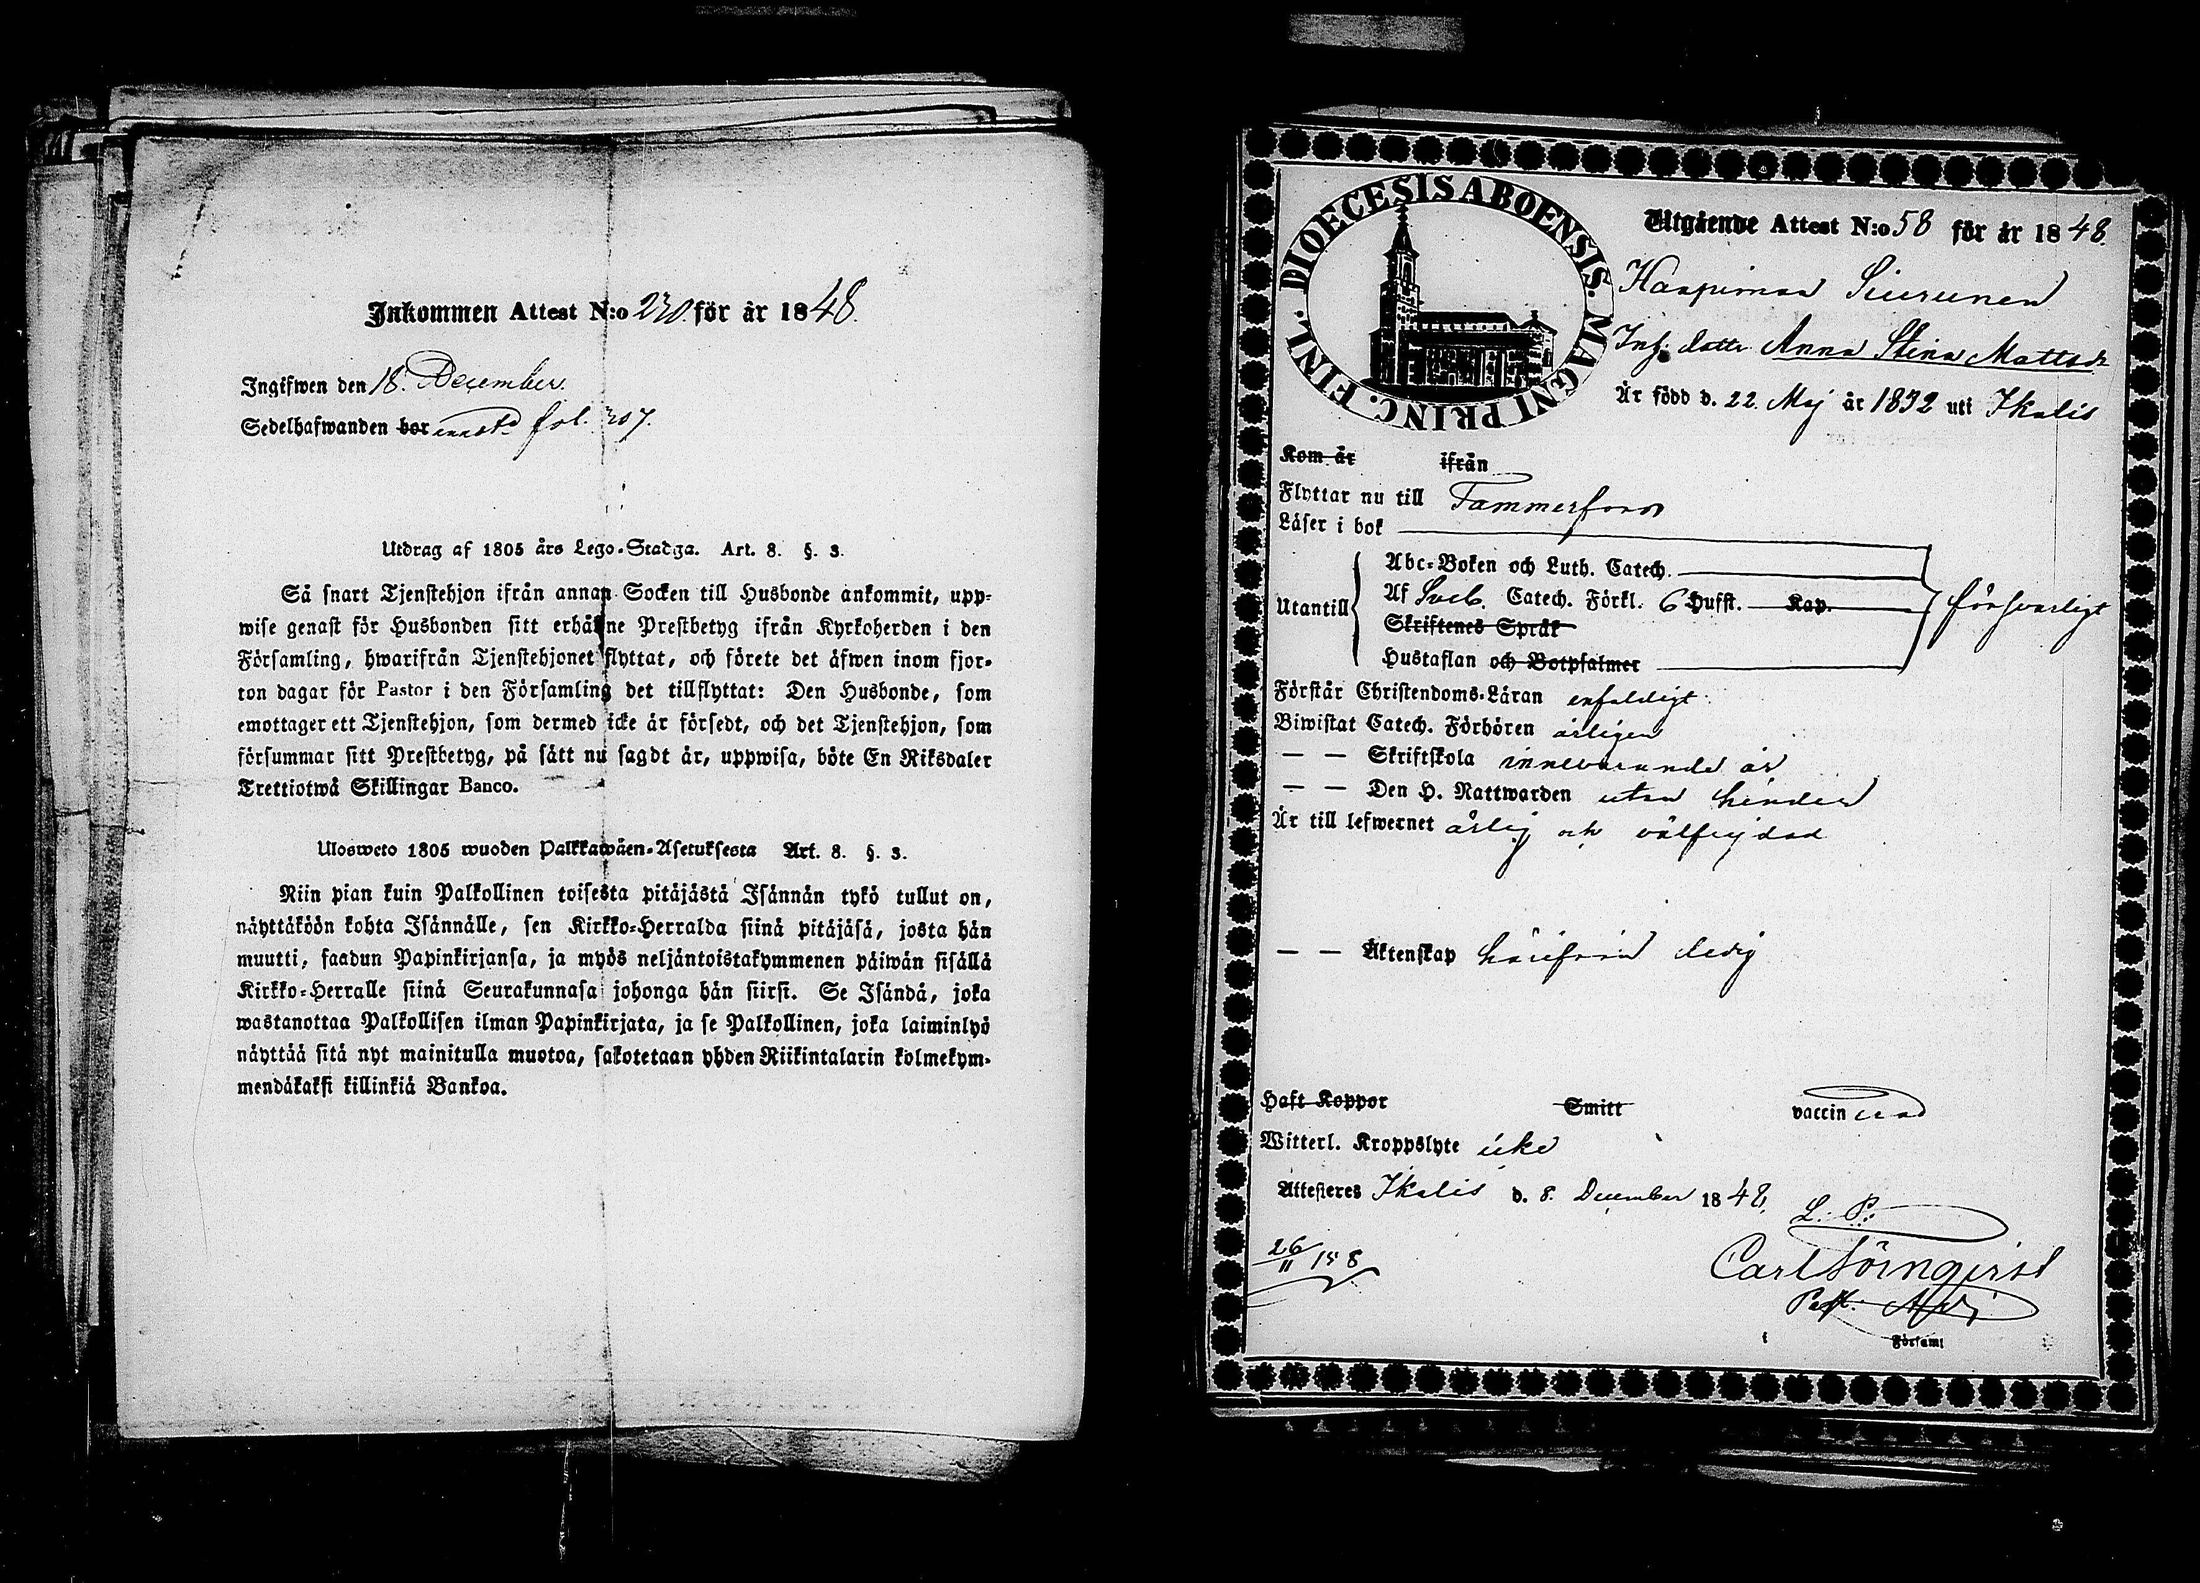 Inkommen Attest N:o 230 för år 1848.
Ingifwen den 18. December.
Sedelhafwanden bor fol. 307.
Utdrag af 1805 års Lego-Stadga. Art. 8. §. 3.
Så snart Tjenstehjon ifrån annan Socken till Husbonde ankommit, upp-
wise genast för Husbonden sitt erhåline Prestbetyg ifrån Kyrkoherden i den
Församling, hwarifrån Tjenstehjonet flyttat, och förete det äfwen inom fjor-
ton dagar för Pastor i den Församling det tillflyttat: Den Husbonde, som
emottager ett Tjenstehjon, som dermed icke är försedt, och det Tjenstehjon, som
försummar sitt Prestbetyg, på sätt nu sagdt är, uppwisa, böte En Riksdaler
Trettiotwå Skillingar Banco.
Ulosweto 1805 wuoden Palkkawäen-Asetuksesta Art. 8. §. 3.
Niin pian kuin Palkollinen toisesta pitäjästä Isännän tykö tullut on,
näyttäköön kohta Isännälle, sen Kirkko-Herralda siinä pitäjäsä, josta hän
muutti, saadun Papinkirjansa, ja myös neljäntoistakymmenen päiwän sisällä
Kirkko-Herralle siinä Seurakunnasa johonga hän siirsi. Se Isändä, joka
wastanottaa Palkollisen ilman Papinkirjata, ja se Palkollinen, joka laiminlyö
näyttää sitä nyt mainitulla muotoa, sakotetaan yhden Riikintalarin kolmekym-
mendäkaksi killinkiä Bankoa.
DIOECESIS ABOENSIS. MAGNI PRINC. FINL.
Utgående Attest N:o 58 för år 1848.
Haapimaa Siurunen
Inh. dottr Anna Stina Mattsdr
Är född d. 22. Maj år 1832 uti Ikalis
Kom år ifrån
Flyttar nu till Tammerfors
Läser i bok
Abc-Boken och Luth. Catech.
Utantill Af Sveb. Catech. Förkl. 6 Hufst. Kap. försvarligt
Skriftenes Språk
Hustaflan och Botpsalmer
Förstår Christendoms-Läran enfaldigt.
Biwistat Catech. Förhören årligen
— — Skriftskola innevarande år
— — Den H. Nattwarden utan hinder
Är till lefwernet ärlig och välfrejdad
— — Äktenskap härifrån ledig
Haft Koppor Smitt vaccinerad
Witterl. Kroppslyte icke
Attesteras Ikalis d. 8. December 1848,
L. P.
26/11 158
Carl Törnqvist
Past. Adj.
Församl